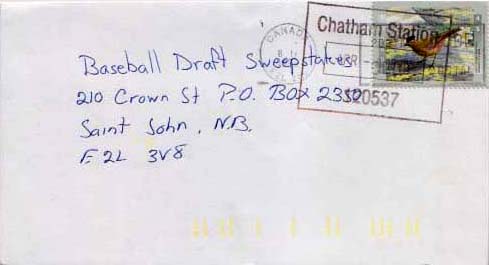 Chatham Station
CANADA
520537
Baseball Draft Sweepstakes
210 Crown St P.O. Box 2350
Saint John, N.B.
E2L 3V8